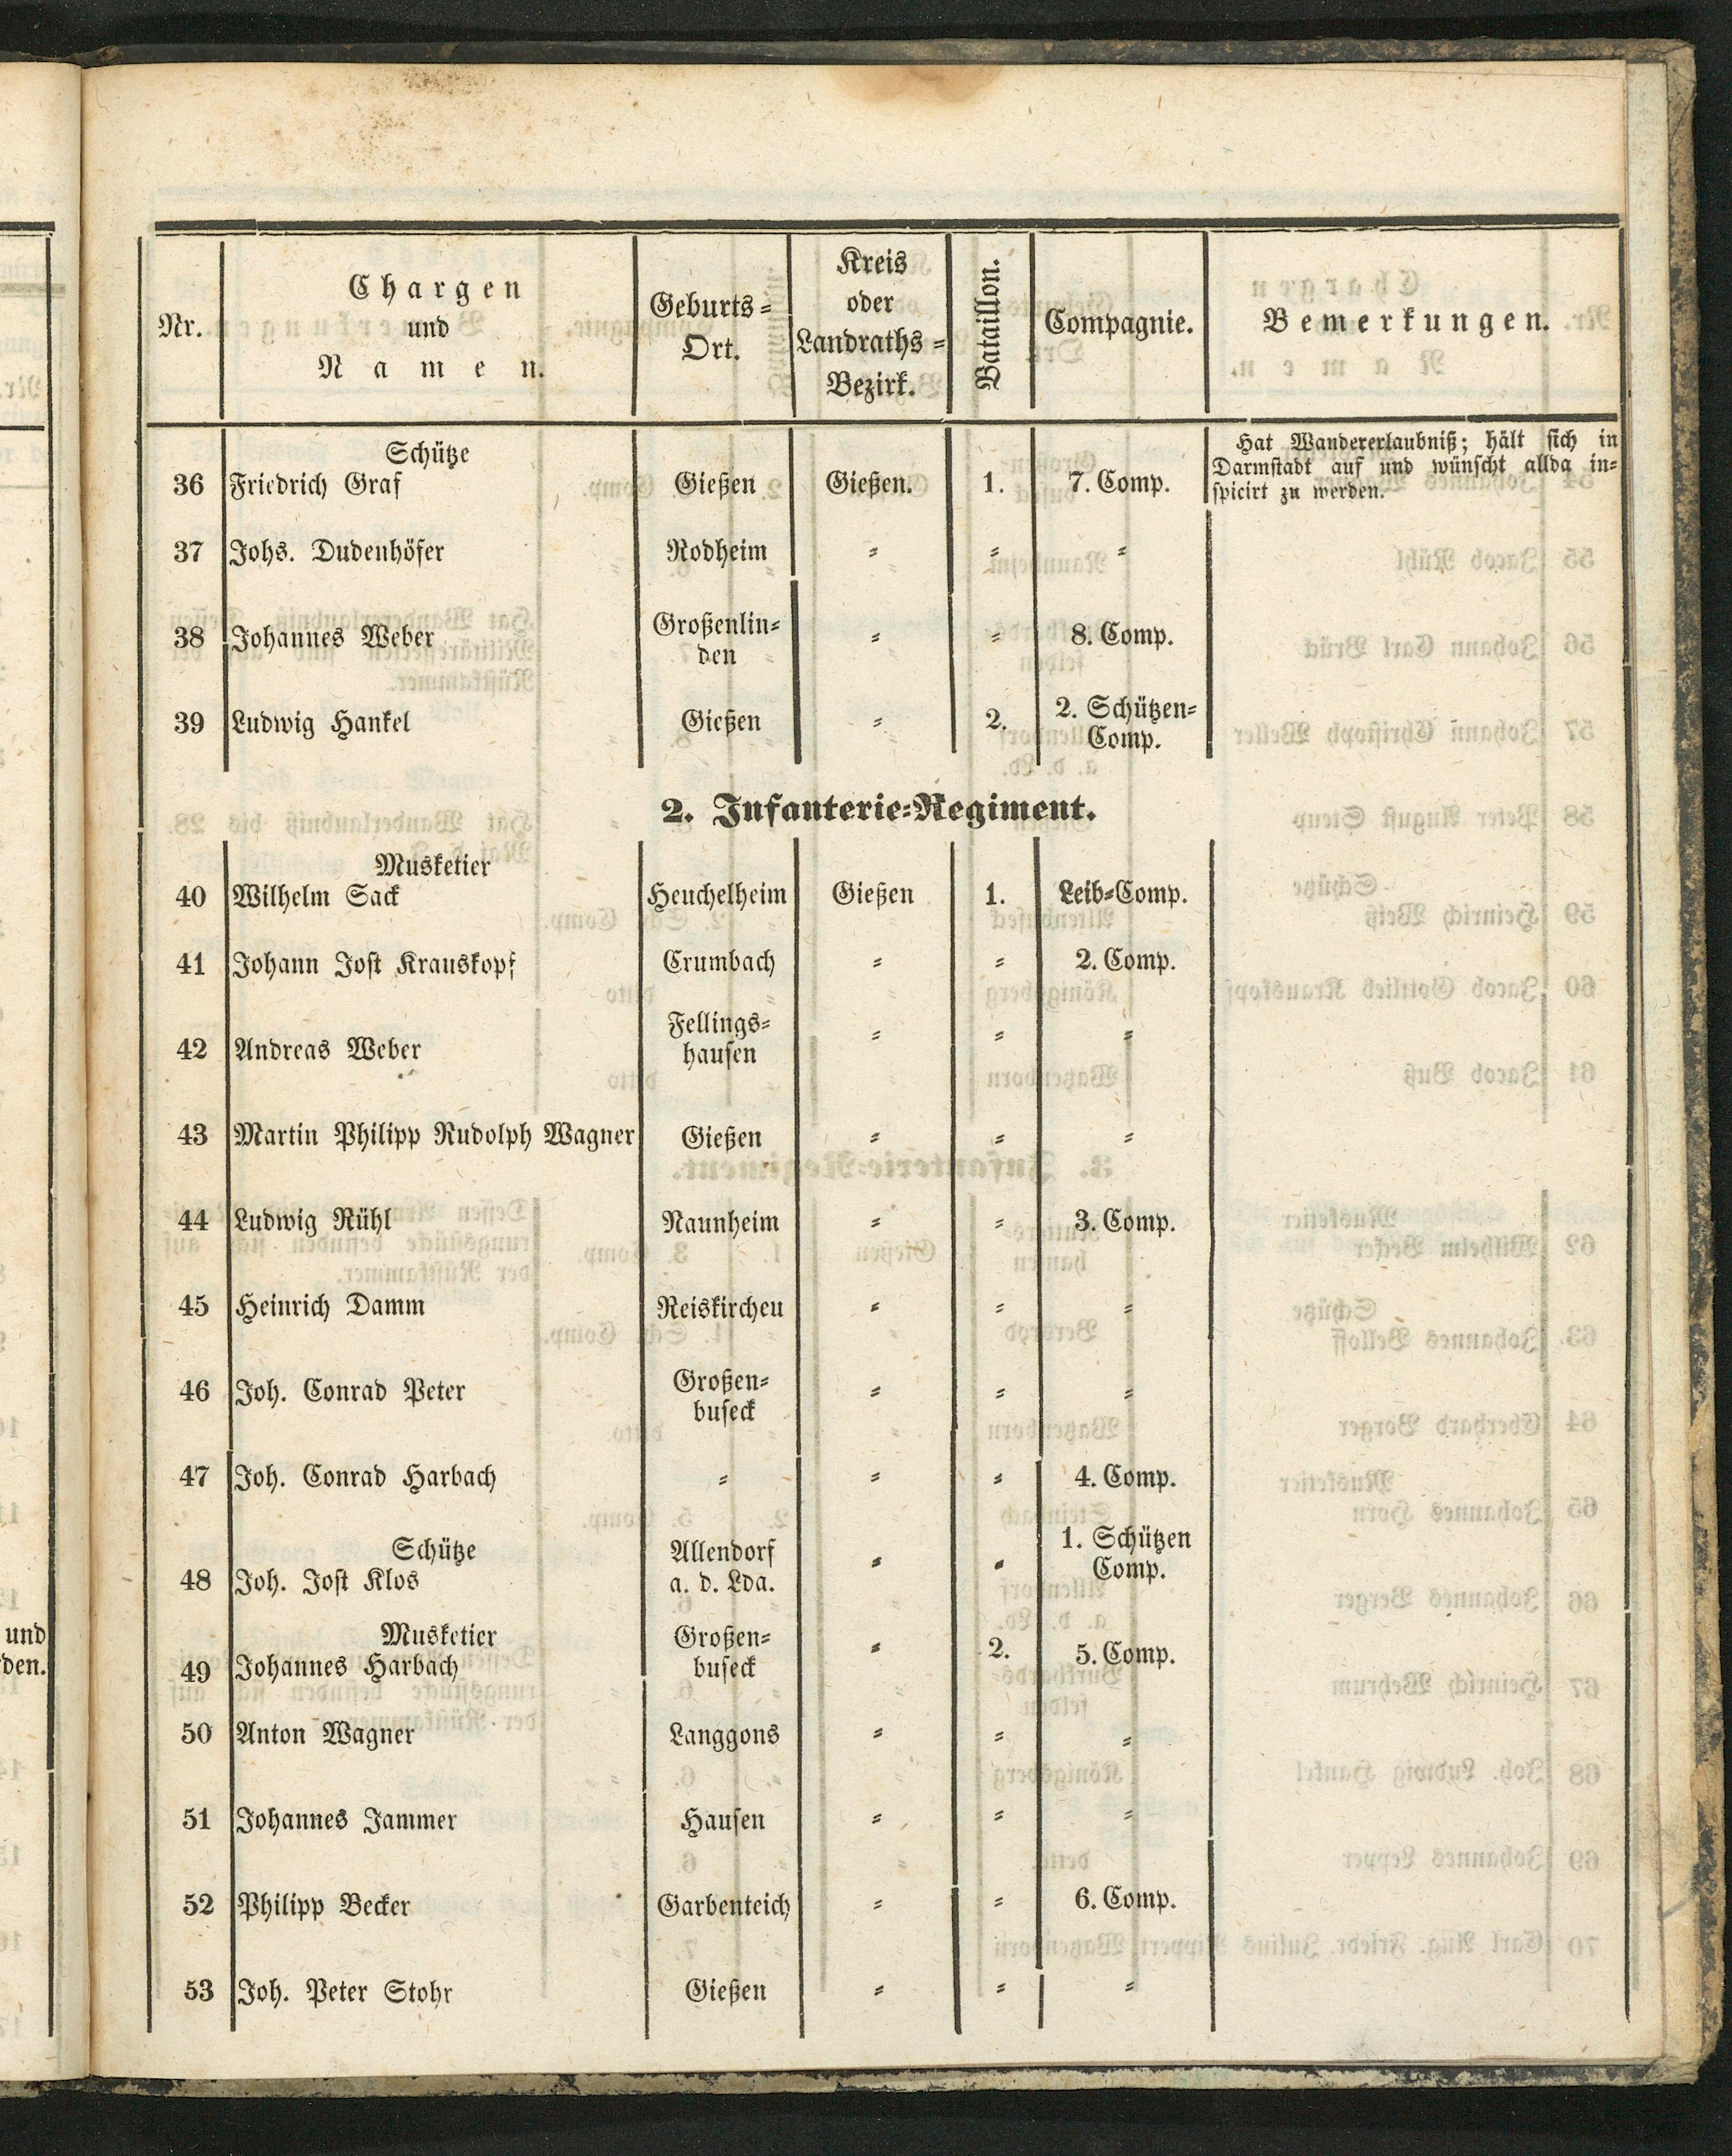 Nr. Chargen und Namen. Geburts= Ort. Kreis oder Landraths= Bezirk. Bataillon. Compagnie. Bemerkungen.
Schütze
36 Friedrich Graf Gießen Gießen. 1. 7. Comp. Hat Wandererlaubniß; hält sich in
Darmstadt auf und wünscht allda in=
spicirt zu werden.
37 Johs. Dudenhöfer Rodheim = = =
38 Johannes Weber Großenlin= = = 8. Comp.
den
39 Ludwig Hankel Gießen = 2. 2. Schützen=
Comp.
2. Infanterie=Regiment.
Musketier
40 Wilhelm Sack Heuchelheim Gießen 1. Leib=Comp.
41 Johann Jost Krauskopf Crumbach = = 2. Comp.
42 Andreas Weber Fellings= = = =
hausen
43 Martin Philipp Rudolph Wagner Gießen = = =
44 Ludwig Rühl Naunheim = = 3. Comp.
45 Heinrich Damm Reiskirchen = = =
46 Joh. Conrad Peter Großen= = = =
buseck
47 Joh. Conrad Harbach = = = 4. Comp.
Schütze Allendorf = = 1. Schützen
48 Joh. Jost Klos a. d. Lda. Comp.
Musketier Großen= = 2. 5. Comp.
49 Johannes Harbach buseck
50 Anton Wagner Langgons = = =
51 Johannes Jammer Hausen = = =
52 Philipp Becker Garbenteich = = 6. Comp.
53 Joh. Peter Stohr Gießen = = =
und
den.